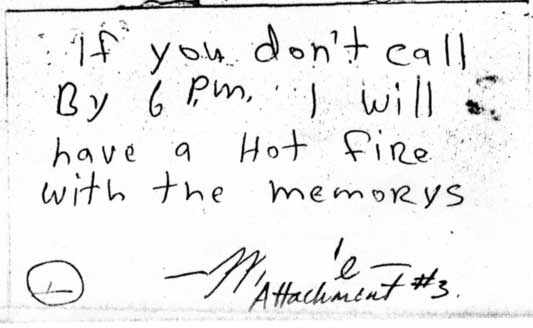 If you don't call
By 6 P.m. I will
have a Hot fire
with the memorys
Attachment #3.
1